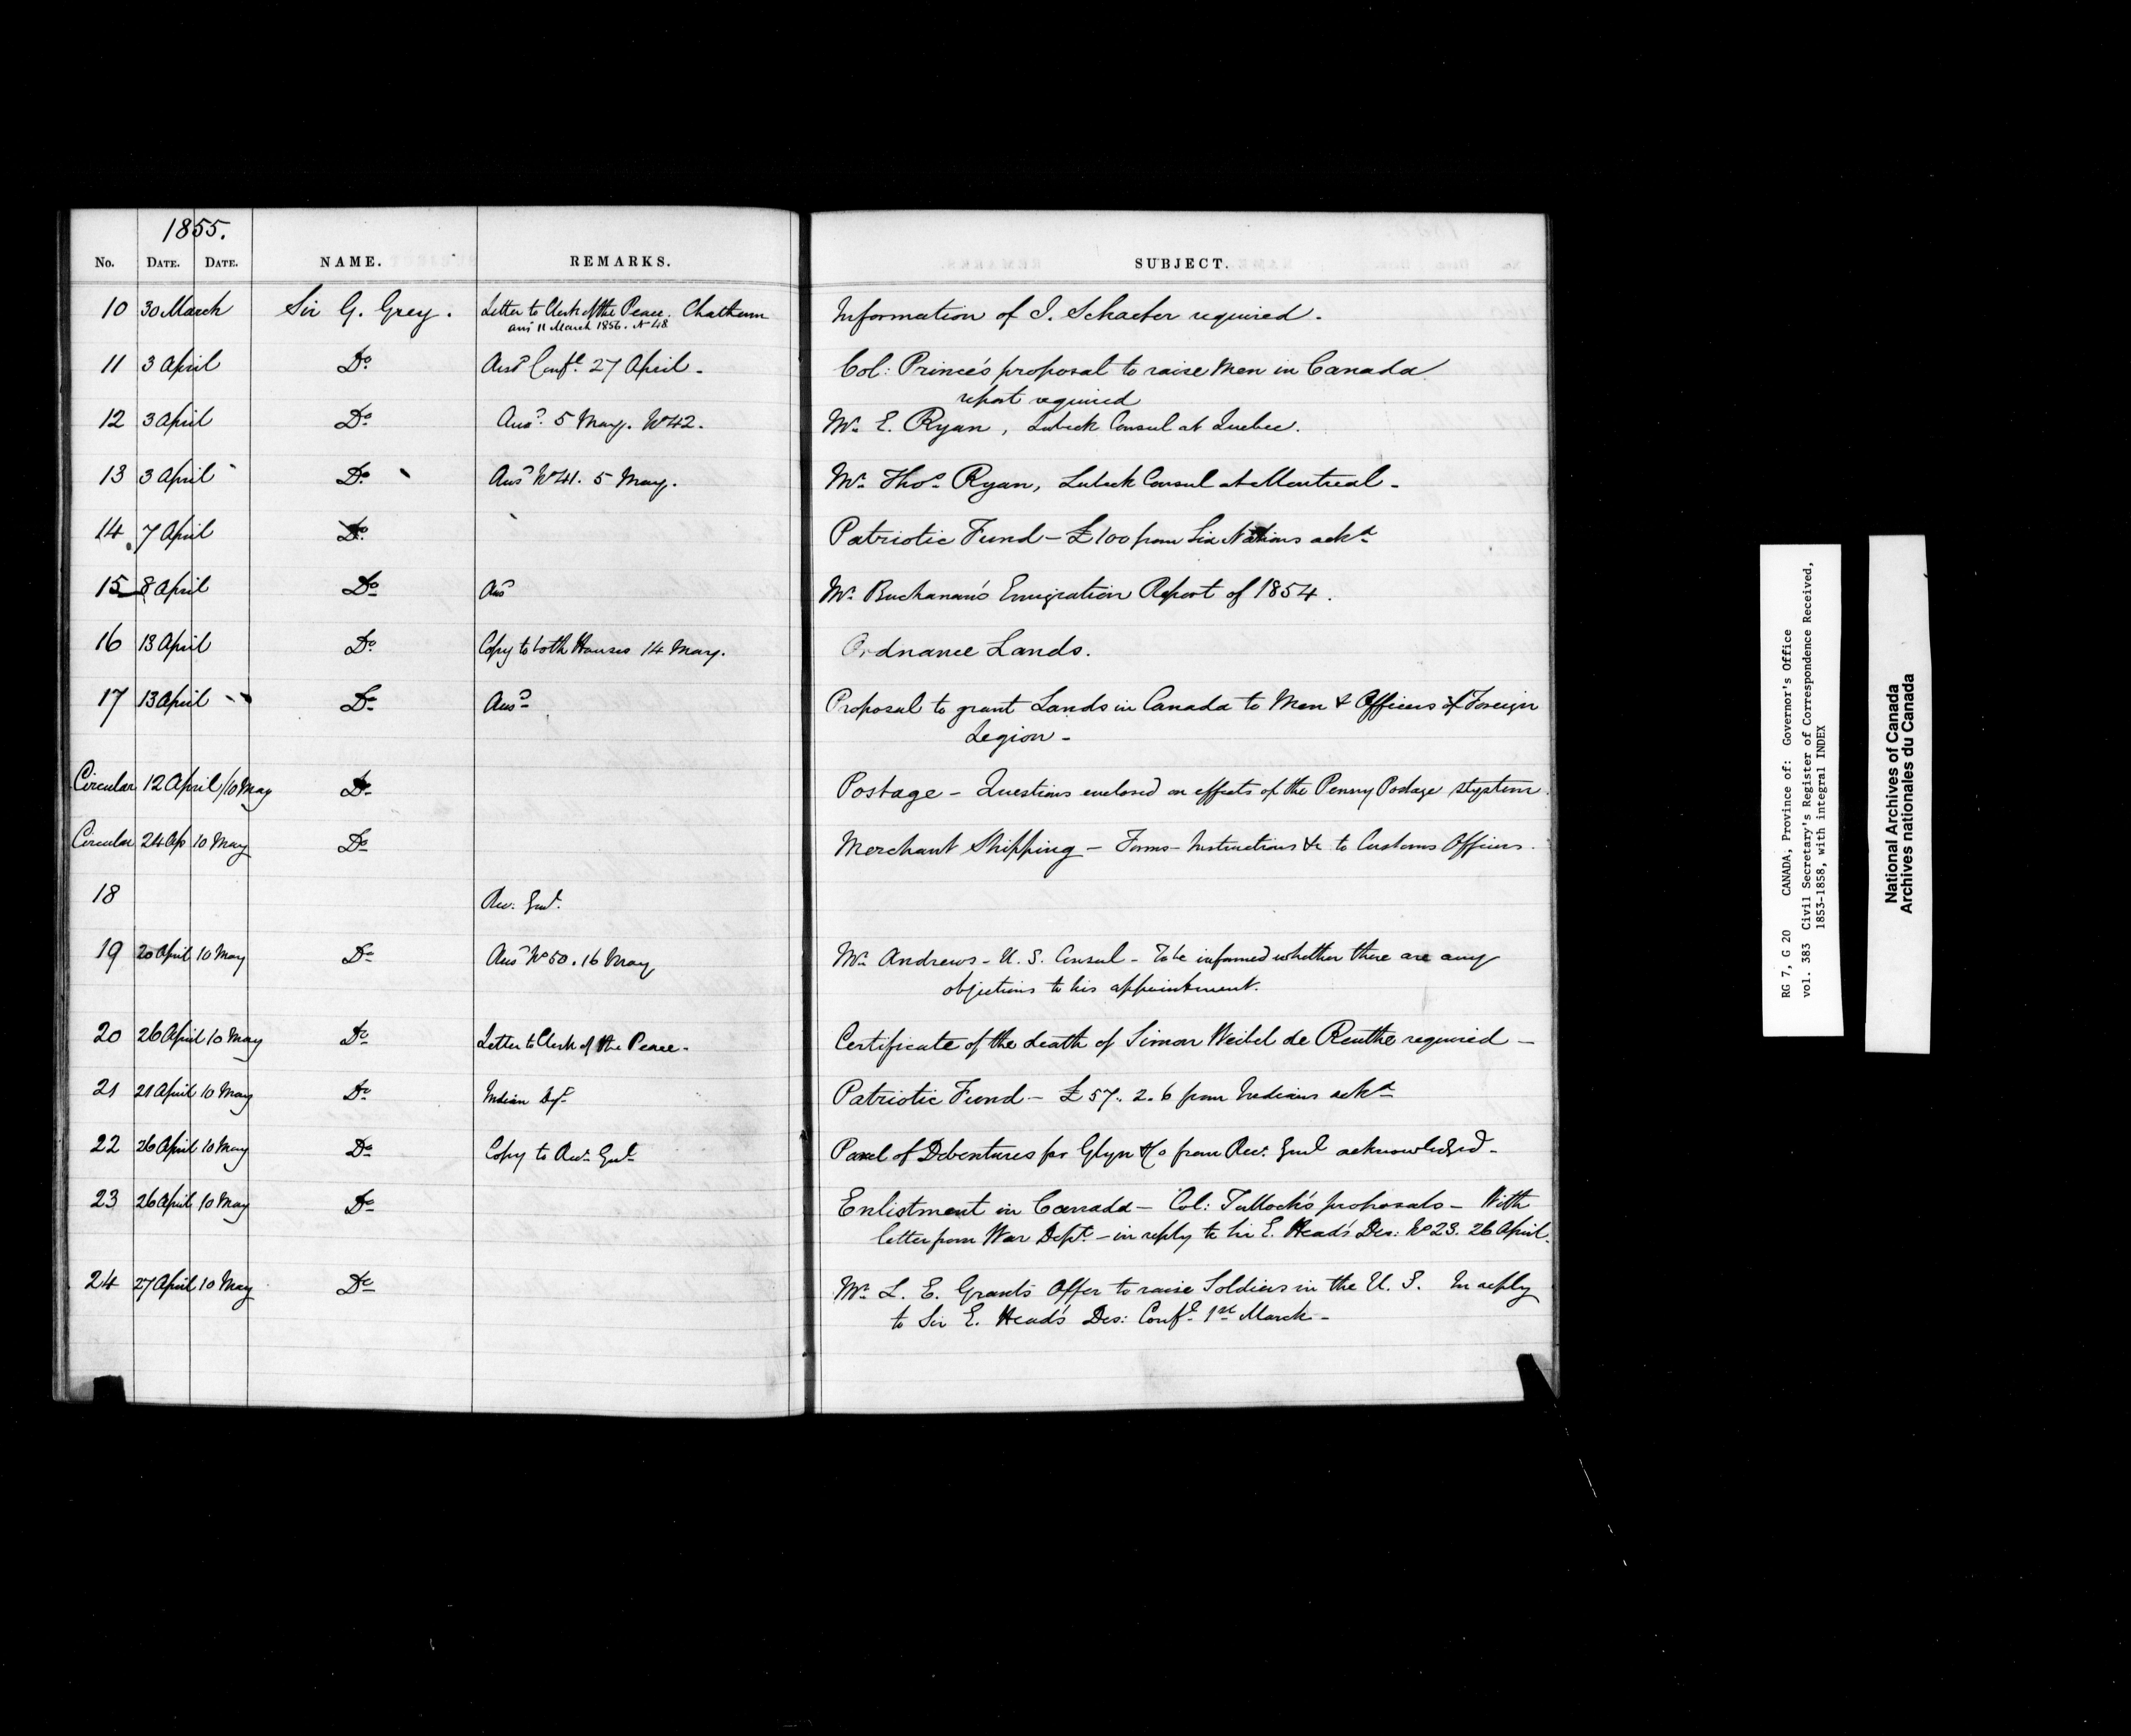 1855.
No. DATE. DATE. NAME. REMARKS. SUBJECT.
10 30 March Sir G. Grey. Letter to Clerk of the Peace. Chatham Information of J. Schaefer required.
ans 11 March 1856. No 48
11 3 April Do Ansd Confl. 27 April. Col: Prince's proposal to raise Men in Canada
report required
12 3 April Do Ansd. 5 May. No 42. Mr E. Ryan, Lubeck Consul at Quebec.
13 3 April Do Ansd No 41. 5 May. Mr Thos Ryan, Lubeck Consul at Montreal.
14 7 April Do Patriotic Fund - £100 from Six Nations ackd
15 8 April Do Ansd Mr Buchanan's Emigration Report of 1854.
16 13 April Do Copy to both Houses 14 May. Ordnance Lands.
17 13 April Do Ansd Proposal to grant Lands in Canada to Men & Officers of Foreign
Legion -
Circular 12 April /10 May Do Postage - Questions enclosed on effects of the Penny Postage system.
Circular 24 Ap 10 May Do Merchant Shipping - Forms - Instructions &c to Customs Officers.
18 Rec. Genl.
19 20 April 10 May Do Ansd No 50. 16 May Mr Andrews - U. S. Consul - To be informed whether there are any
objections to his appointment.
20 26 April 10 May Do Letter to Clerk of the Peace. Certificate of the death of Simon Weibel de Reuthe required -
21 21 April 10 May Do Indian Dept Patriotic Fund - £57. 2. 6 from Indians ackd
22 26 April 10 May Do Copy to Recr Genl Parcel of Debentures for Glyn & Co from Rec. Genl acknowledged.
23 26 April 10 May Do Enlistment in Canada - Col: Tulloch's proposals - With
letter from War Dept. - in reply to Sir E. Head's Des: No 23. 26 April.
24 27 April 10 May Do Mr L. E. Grant's Offer to raise Soldiers in the U. S. In reply
to Sir E. Head's Des: Confl 1st March -
RG 7, G 20 CANADA, Province of: Governor's Office
vol. 383 Civil Secretary's Register of Correspondence Received,
1853-1858, with integral INDEX
National Archives of Canada
Archives nationales du Canada